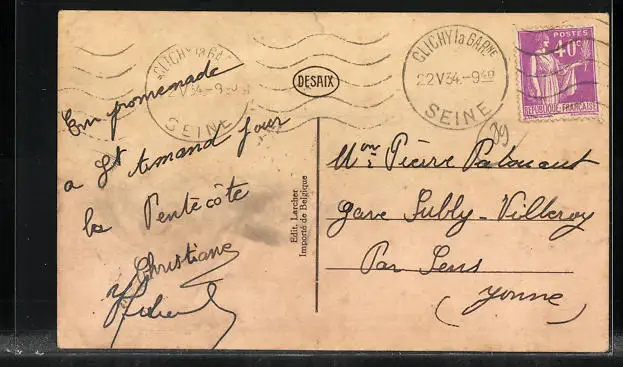 En promenade
a St Amand pour
la Pentecôte
Christiane
DESAIX
Edit. Larcher
Importé de Belgique
CLICHY la GARNE
22 V 34 - 9 40
SEINE
CLICHY la GARNE
22 V 34 - 9 40
SEINE
POSTES
40c
REPUBLIQUE FRANÇAISE
Mr Pierre
gare Subly-Villeroy
Par Sens
(Yonne)